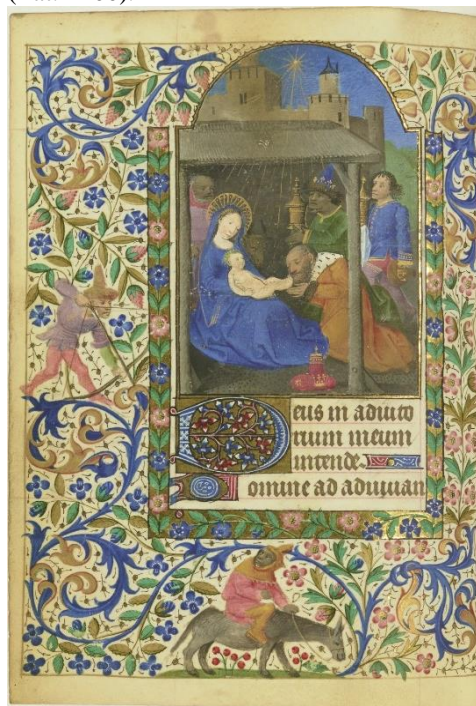 Deus in adiuto
rium meum
intende.
Domine ad adiuuan